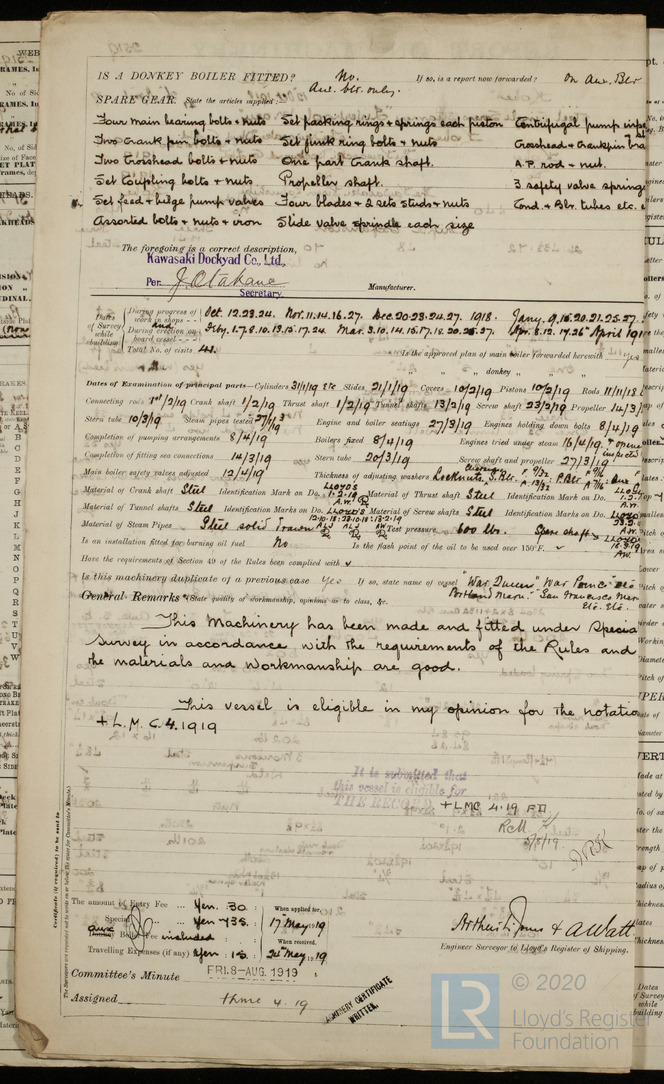 IS A DONKEY BOILER FITTED? No. If so, is a report now forwarded? On Aux. Blr
Aux. blr. only.
SPARE GEAR. State the articles supplied:
Four main bearing bolts & nuts Set packing rings & springs each piston Centrifugal pump
Two Crank pin bolts & nuts Set junk ring bolts & nuts Crosshead & Crankpin
Two Crosshead bolts & nuts One part Crank shaft. A.P. rod & nut.
Set Coupling bolts & nuts Propeller shaft. 3 safety valve springs
Set feed & bilge pump valves Four blades & 2 sets studs & nuts Cond. & Blr. tubes etc.
Assorted bolts & nuts & iron Slide valve spindle each size
The foregoing is a correct description,
Kawasaki Dockyad Co., Ltd.,
Per. Manufacturer.
Secretary.
Dates of Survey while building
During progress of work in shops - - Oct. 12.23.24. Nov. 11.14.16.27. Dec. 20.23.24.27. 1918. Jany. 9.16.20.21.25.27.
During erection on board vessel - - - Feby. 1.7.8.10.13.15.17.24. Mar. 3.10.14.15.17.18.20.25.27. Apr. 8.12.17.26 April 191
Total No. of visits 41. Is the approved plan of main boiler forwarded herewith yes
" " " donkey " " "
Dates of Examination of principal parts—Cylinders 31/1/19 etc Slides 21/1/19 Covers 10/2/19 Pistons 10/2/19 Rods 11/11/18
Connecting rods 1st/2/19 Crank shaft 1/2/19 Thrust shaft 1/2/19 Tunnel shafts 13/2/19 Screw shaft 23/2/19 Propeller 14/3/
Stern tube 10/3/19 Steam pipes tested 27/1/3 19 Engine and boiler seatings 27/3/19 Engines holding down bolts 8/4/19
Completion of pumping arrangements 8/4/19 Boilers fixed 8/4/19 Engines tried under steam 16/4/19 & opened
Completion of fitting sea connections 14/3/19 Stern tube 20/3/19 Screw shaft and propeller 27/3/19
Main boiler safety valves adjusted 12/4/19 Thickness of adjusting washers Locknuts
Material of Crank shaft Steel Identification Mark on Do. LLOYDS 1-2-19 A.W. Material of Thrust shaft Steel Identification Mark on Do.
Material of Tunnel shafts Steel Identification Marks on Do. LLOYD'S Material of Screw shafts Steel Identification Marks on Do.
Material of Steam Pipes Steel solid drawn Test pressure 600 lbs. Spare shaft
Is an installation fitted for burning oil fuel No Is the flash point of the oil to be used over 150°F.
Have the requirements of Section 49 of the Rules been complied with
Is this machinery duplicate of a previous case Yes If so, state name of vessel "War Queen" "War Prince" etc
General Remarks (State quality of workmanship, opinions as to class, &c. "Portland Maru." "San Francisco Maru" Etc. Etc.
This Machinery has been made and fitted under Special
Survey in accordance with the requirements of the Rules and
the materials and Workmanship are good.
This vessel is eligible in my opinion for the notation
+ L.M.C. 4.1919
It is submitted that
this vessel is eligible for
THE RECORD + LMC 4.19 F.D.
5/8/19.
Certificate (if required) to be sent to
The amount of Entry Fee ... Yen. 30 : When applied for,
Special ... Yen 735. : 17th May 1919
Aux Boiler Fee included : When received.
Travelling Expenses (if any) Yen 15. : 24th May 1919
Arthur L. Jones & A Watt
Engineer Surveyor to Lloyd's Register of Shipping.
Committee's Minute FRI. 8-AUG. 1919
Assigned + lmc 4. 19
MACHINERY CERTIFICATE
WRITTEN.
LR © 2020
Lloyd's Register
Foundation